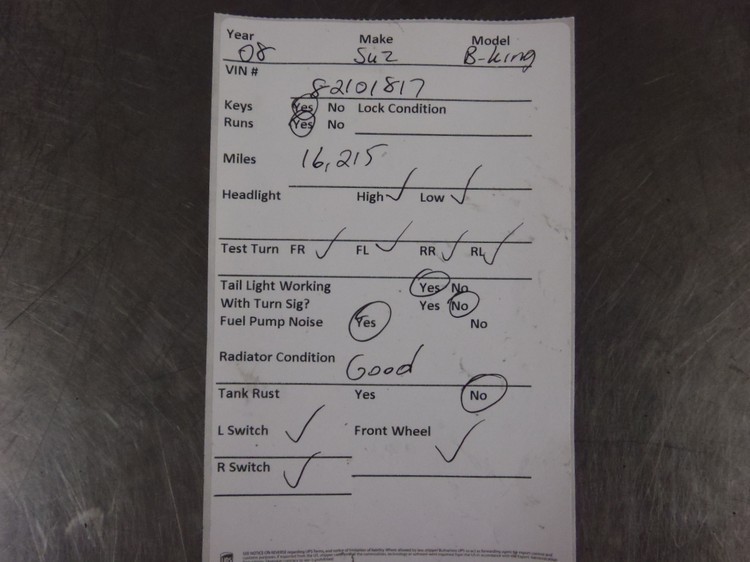 Year Make Model
08 Suz B-King
VIN #
82101817
Keys Yes No Lock Condition
Runs Yes No
Miles 16,215
Headlight High Low
Test Turn FR FL RR RL
Tail Light Working Yes No
With Turn Sig? Yes No
Fuel Pump Noise Yes No
Radiator Condition Good
Tank Rust Yes No
L Switch Front Wheel
R Switch